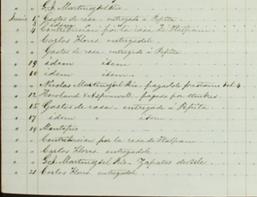 G. J. Martinez del Rio
Junio 15 Gastos de casa - entregado a Pepita
" " idem
" 4 Contribucion por la casa de Tlalpam
" " Carlos Flores entregadole
Gastos de casa - entregado á Pepita
" 19 idem idem
" 10 idem idem
" " Nicolas Martinez del Rio - pagado
" 12 Howland & Aspinwall - pagado por
" 15 Gastos de casa - entregado á Pepita
" 17 idem idem
" 19 Montepio
" " Contribucion por la casa de Tlalpam
" " Carlos Flores entregadole
" " G. J. Martinez del Rio - Zapatos
" 21 Carlos Flores entregadole